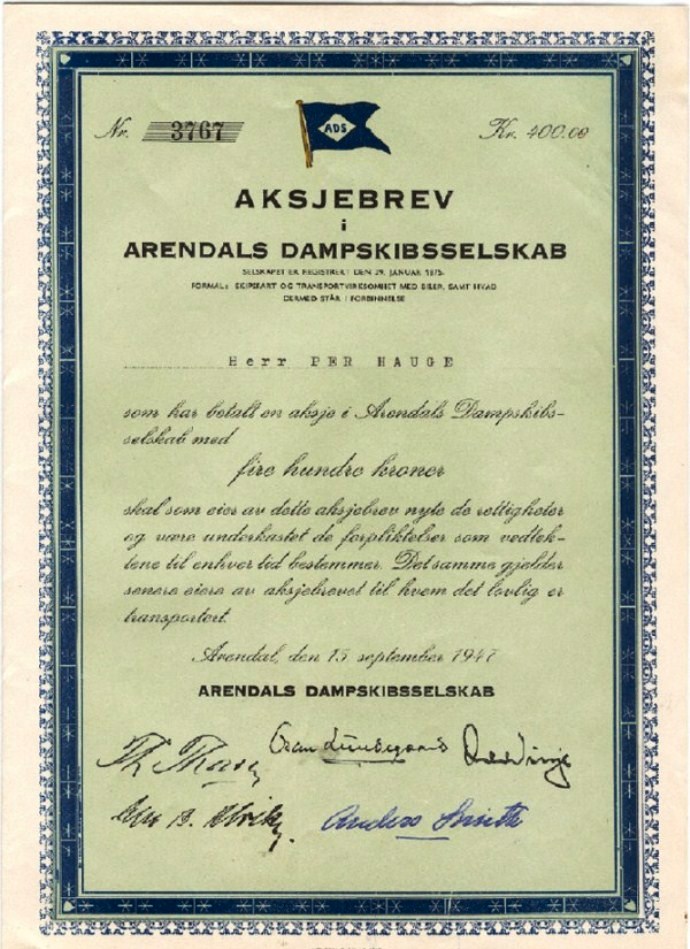 Nr. 3767
ADS
Kr. 400.00
AKSJEBREV
i
ARENDALS DAMPSKIBSSELSKAB
SELSKAPET ER REGISTRERT DEN 29. JANUAR 1875.
FORMÅL: SKIPSFART OG TRANSPORTVIRKSOMHET MED BILER, SAMT HVAD
DERMED STÅR I FORBINNELSE
Herr PER HAUGE
som har betalt en aksje i Arendals Dampskibs-
selskab med
fire hundre kroner
skal som eier av dette aksjebrev nyte de rettigheter
og være underkastet de forpliktelser som vedtek-
tene til enhver tid bestemmer. Det samme gjelder
senere eiere av aksjebrevet til hvem det lovlig er
transportert.
Arendal, den 15 september 1947
ARENDALS DAMPSKIBSSELSKAB
Anders Smith